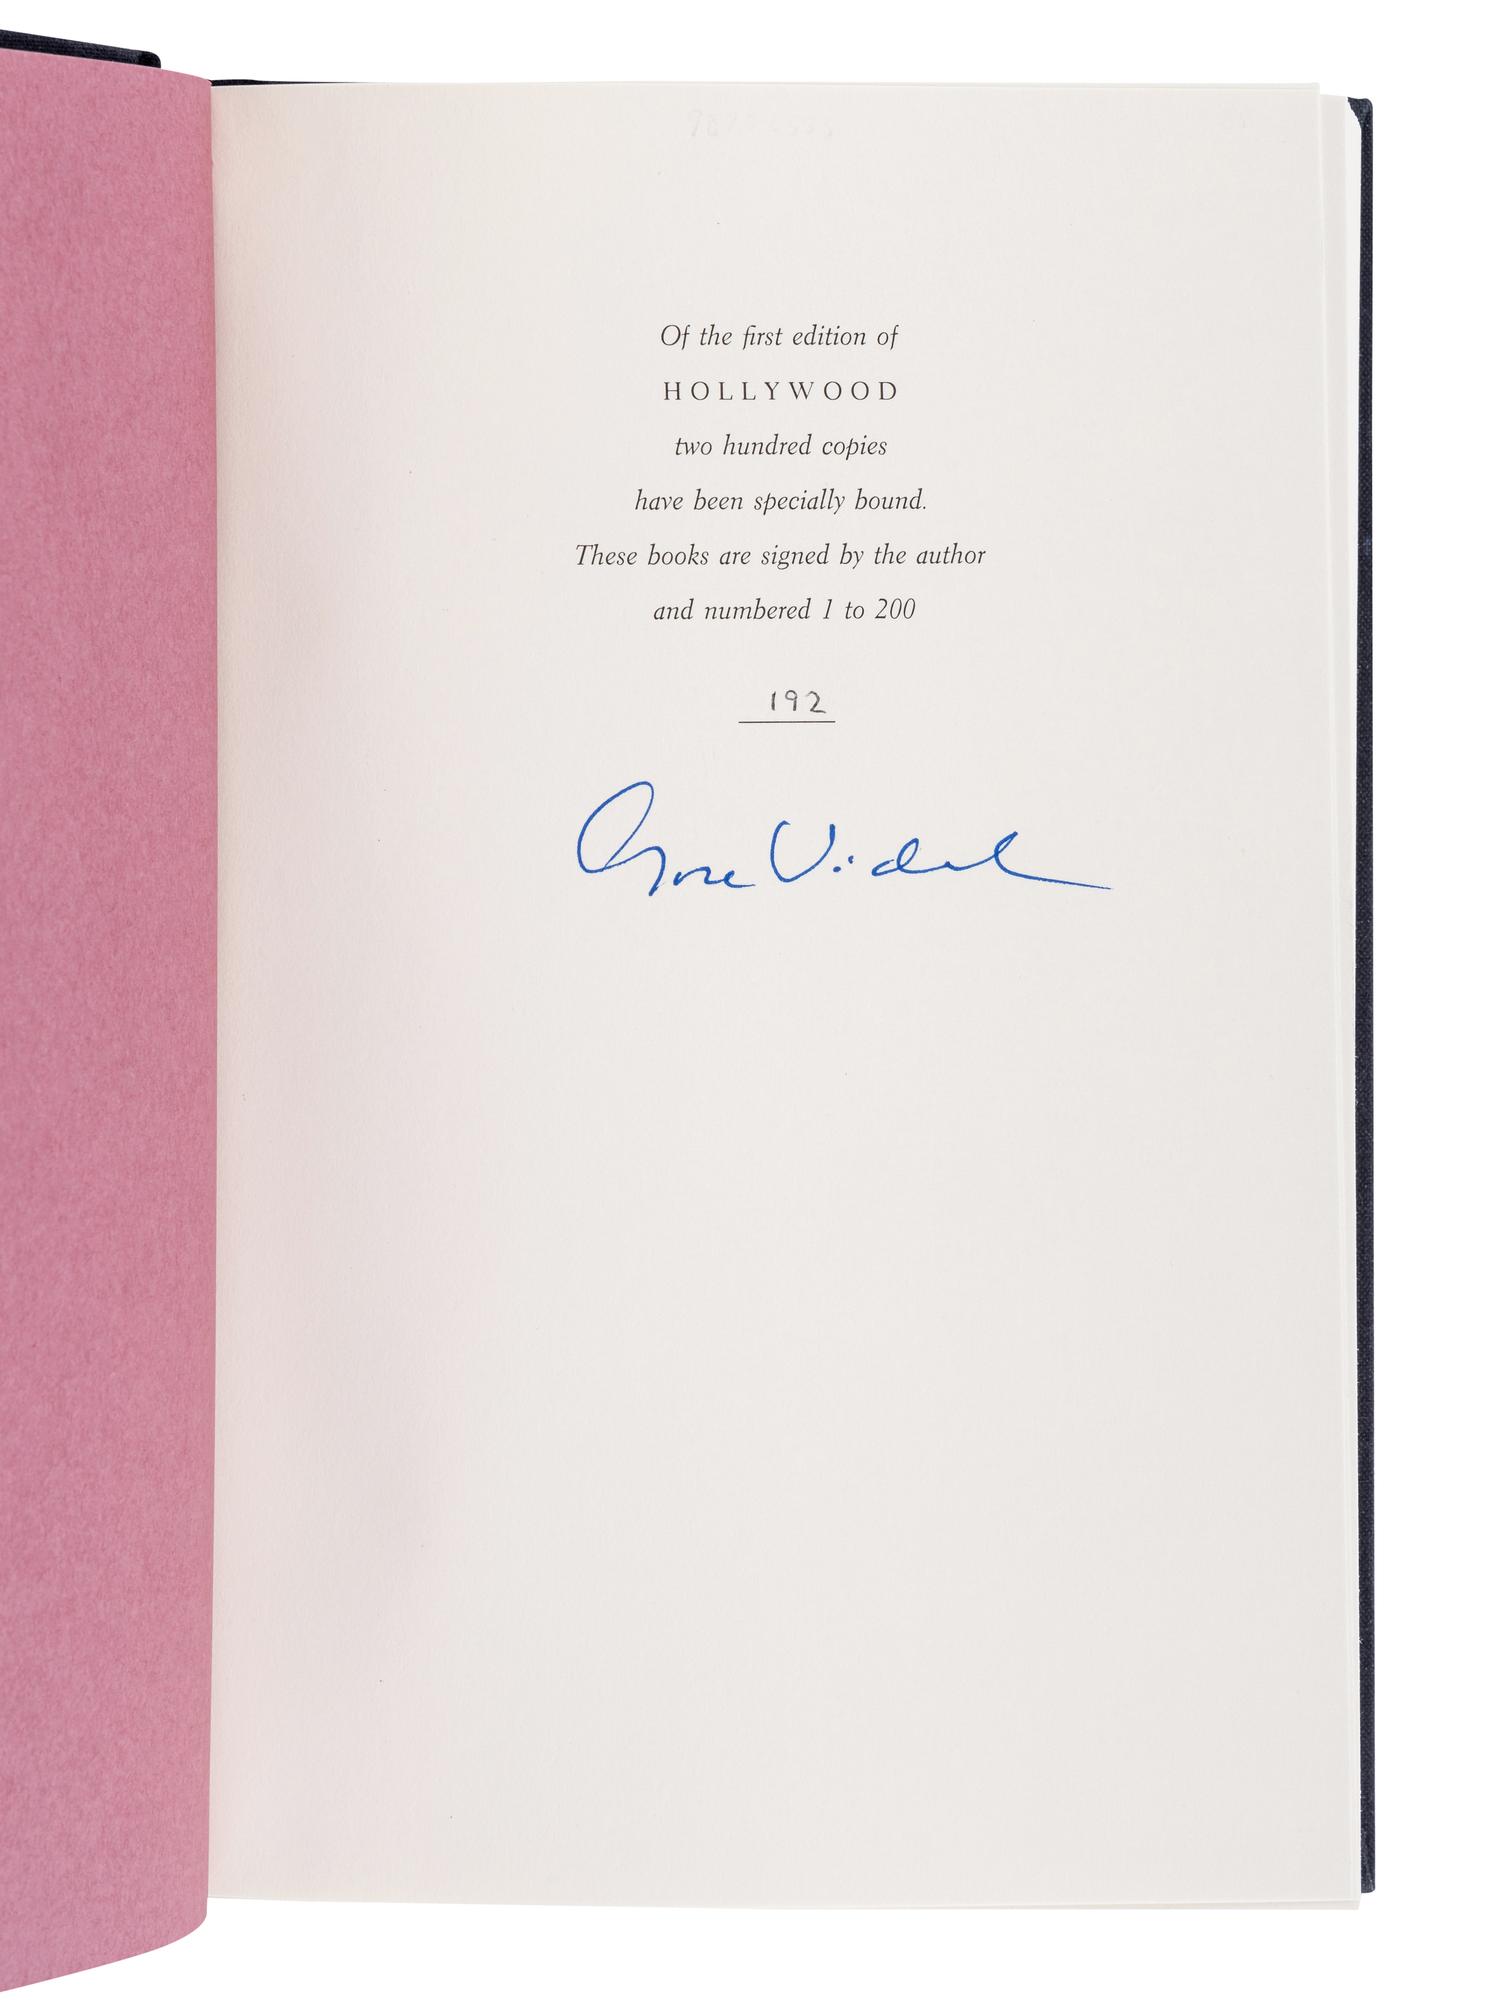 Of the first edition of
HOLLYWOOD
two hundred copies
have been specially bound.
These books are signed by the author
and numbered 1 to 200
192
Gore Vidal